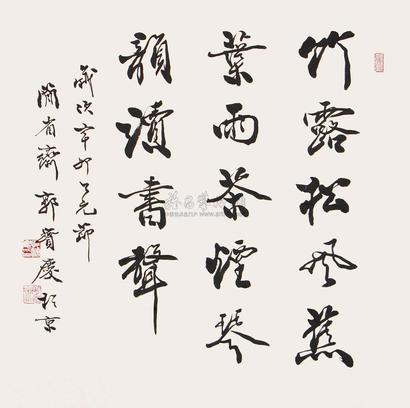 竹露松风蕉
葉雨茶煙琴
韻讀書聲
歲次辛卯上元節
蘭省齋郭寶慶於京